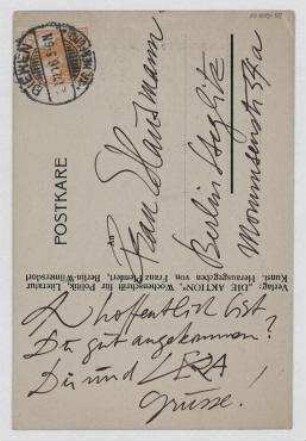 POSTKARE
An
Frau Hausmann
Berlin Steglitz
Mommsenstr. 54a
Verlag: „DIE AKTION“, Wochenschrift für Politik, Literatur
Kunst. Herausgegeben von Franz Pfemfert, Berlin-Wilmersdorf
hoffentlich bist
Du gut angekommen?
Dir und
Grüsse.